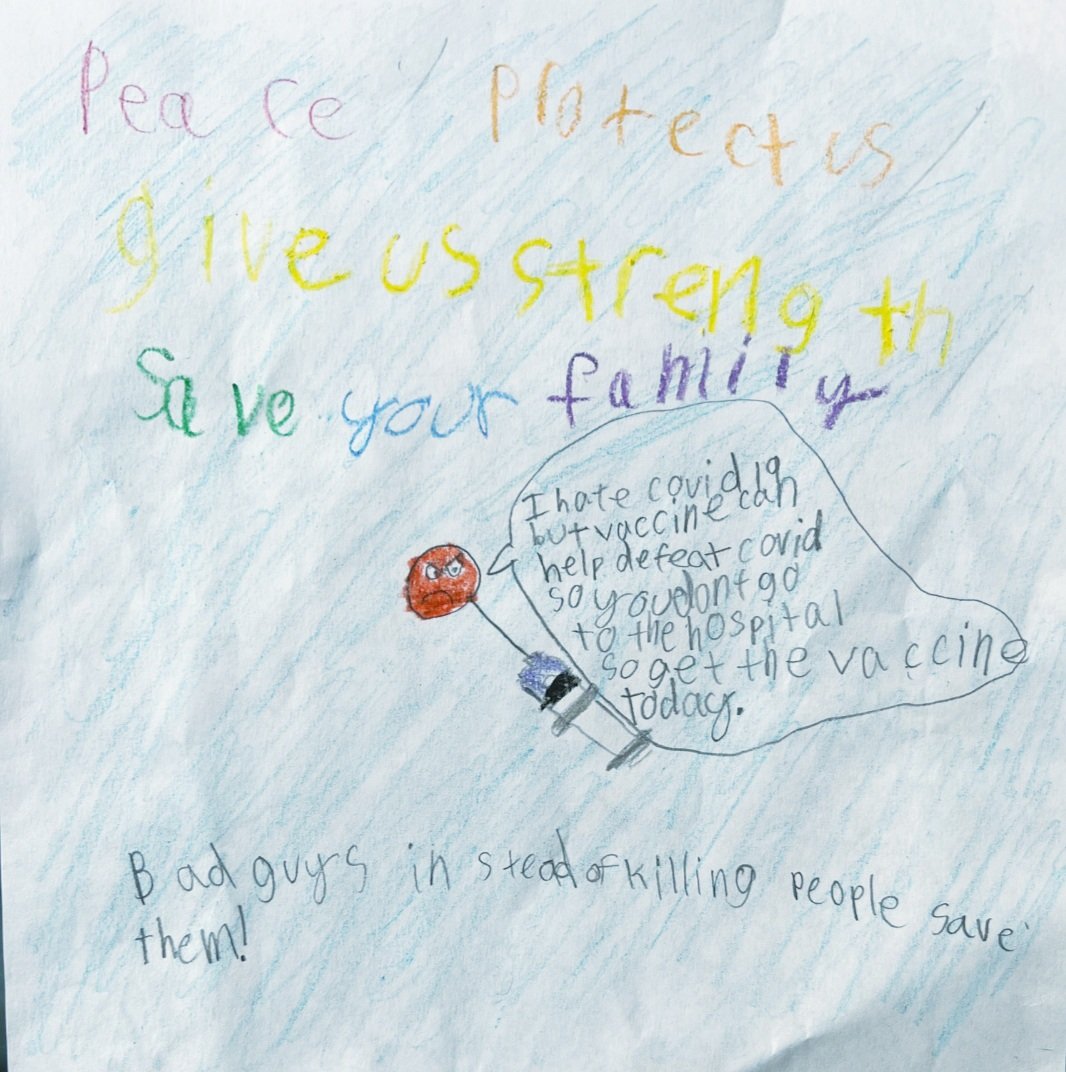 Peace protect us
give us strength
Save your family
I hate covid 19
but vaccine can
help defeat covid
so you dont go
to the hospital
so get the vaccine
today.
Bad guys in stead of killing people save
them!